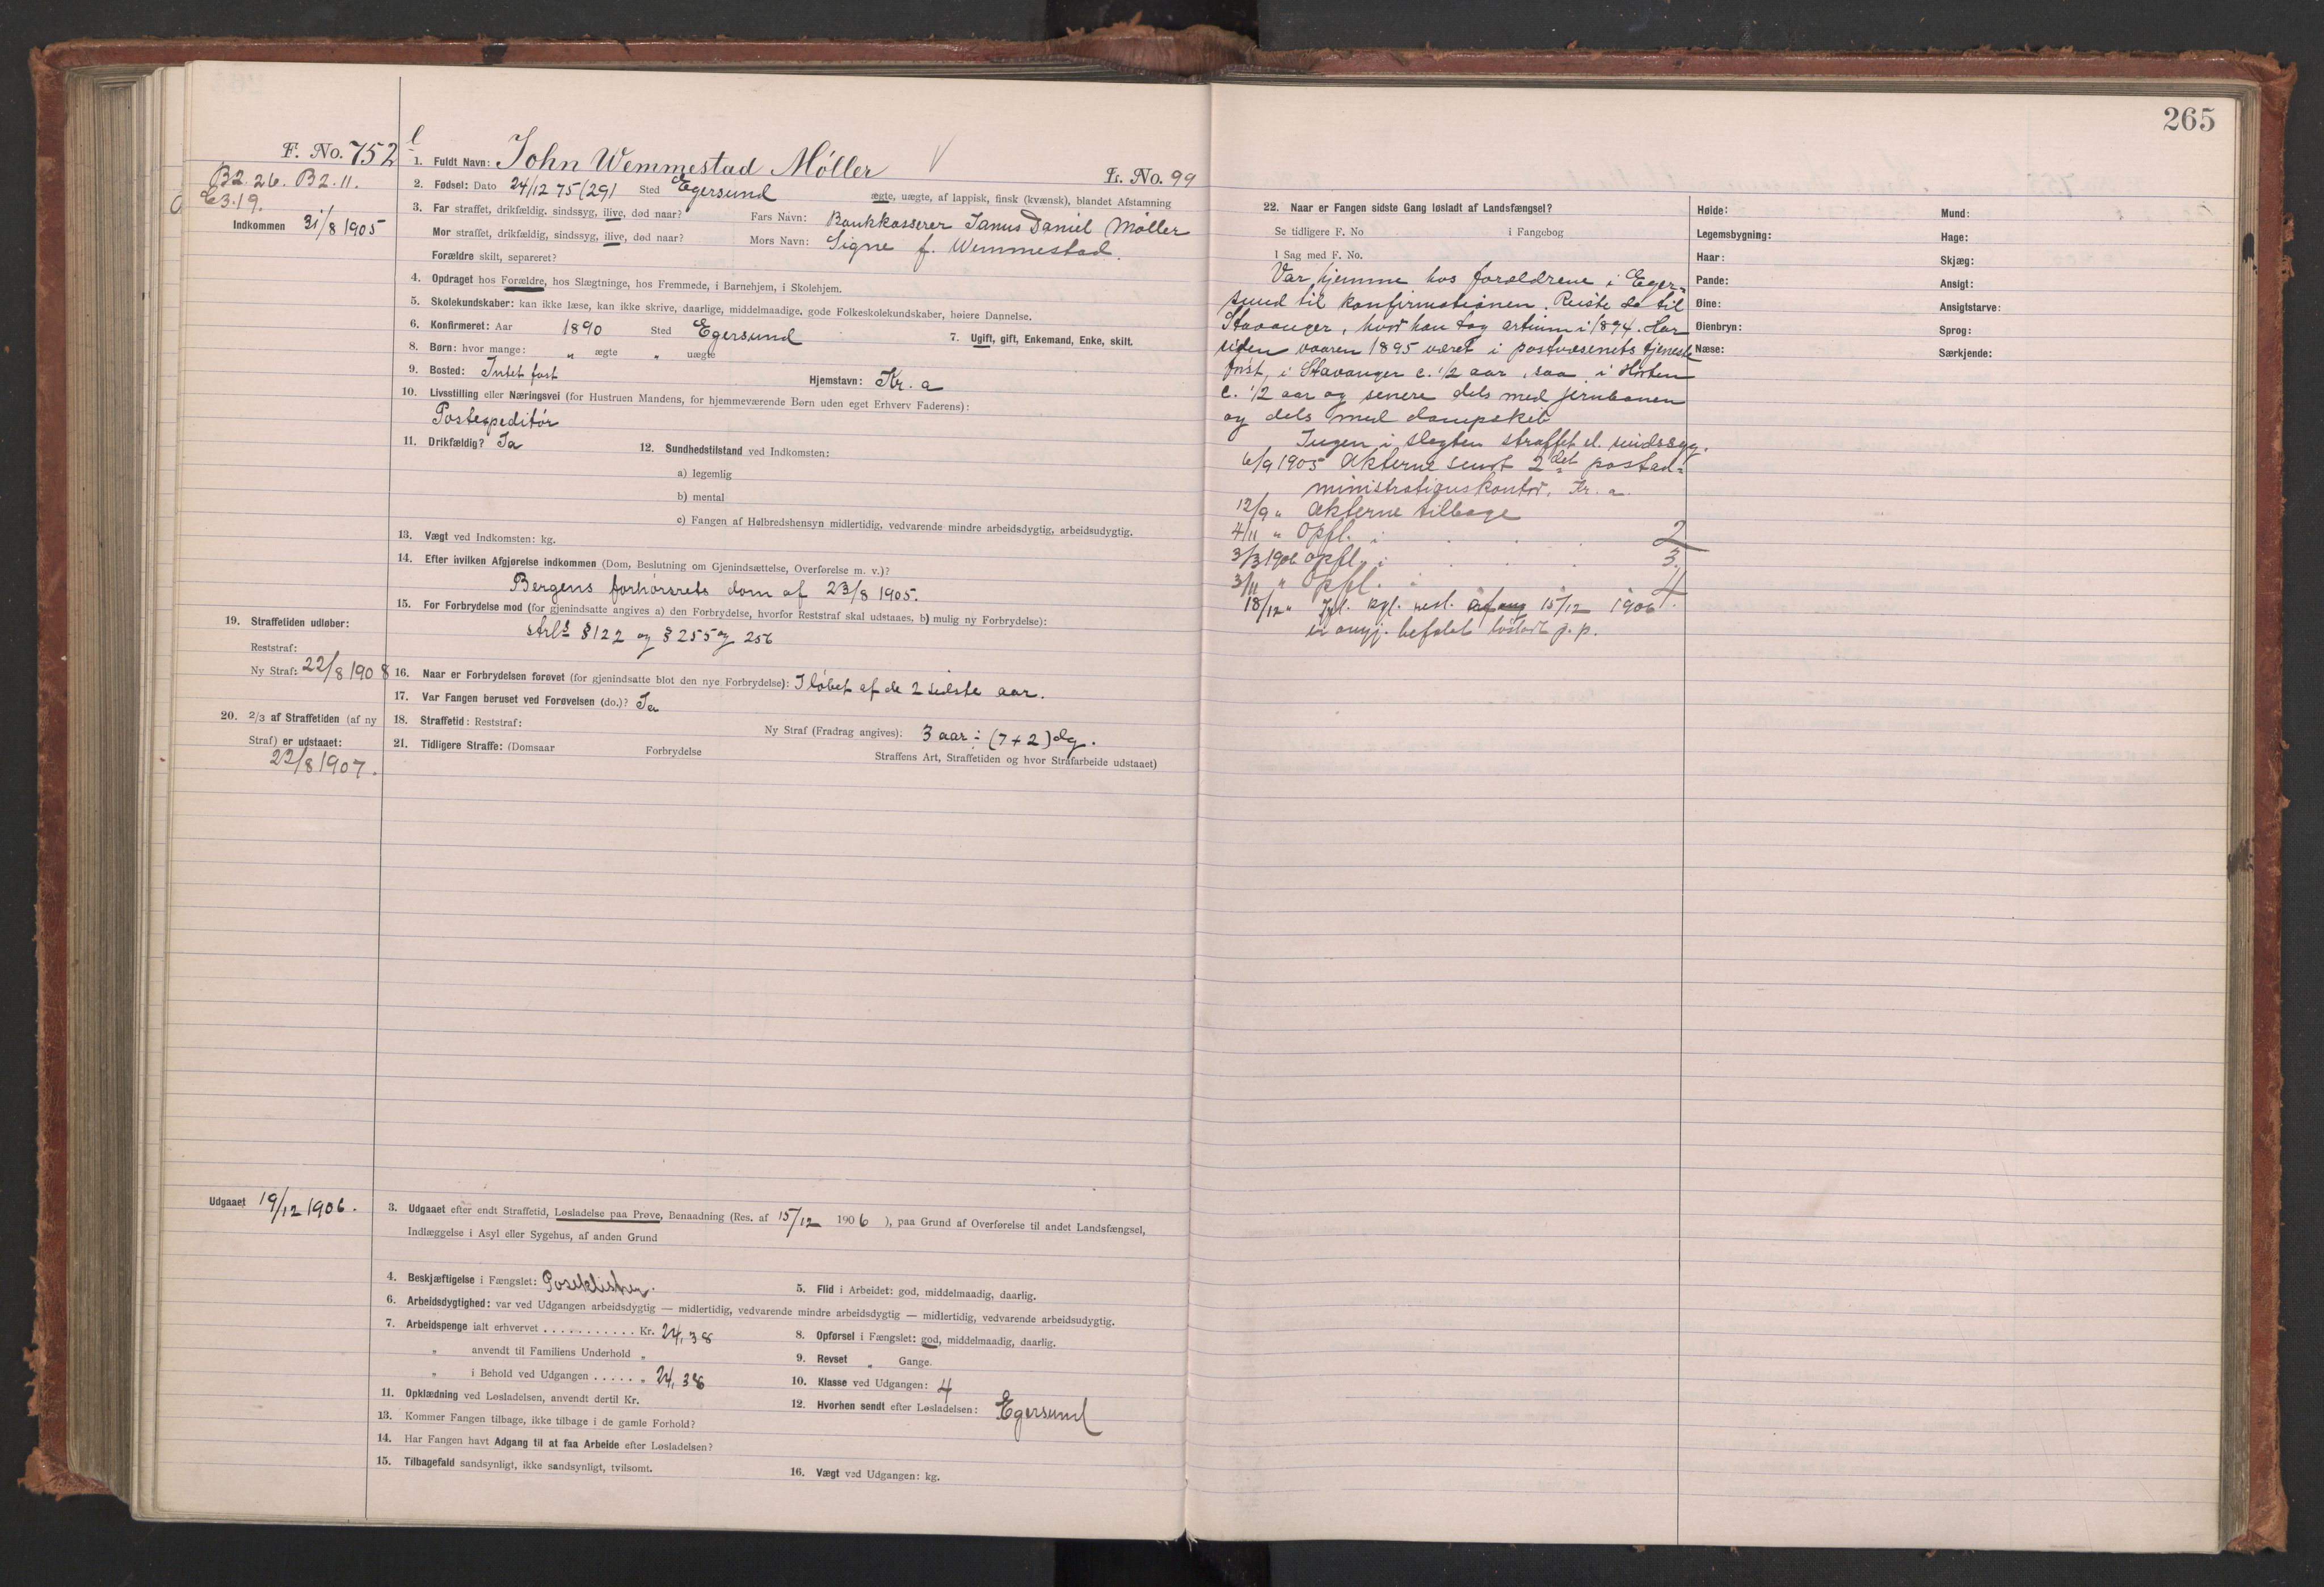 265
F. No. 752
B2. 26. B2. 11.
E3. 19.
Indkommen 31/8 1905
1. Fuldt Navn: John Wemmestad Møller
L. No. 99
2. Fødsel: Dato 24/12 75 (29) Sted Egersund ægte, uægte, af lappisk, finsk (kvænsk), blandet Afstamning
3. Far straffet, drikfældig, sindssyg, ilive, død naar? Fars Navn: Bankkasserer Janus Daniel Møller
Mor straffet, drikfældig, sindssyg, ilive, død naar? Mors Navn: Signe f. Wemmestad.
Forældre skilt, separeret?
4. Opdraget hos Forældre, hos Slægtninge, hos Fremmede, i Barnehjem, i Skolehjem.
5. Skolekundskaber: kan ikke læse, kan ikke skrive, daarlige, middelmaadige, gode Folkeskolekundskaber, høiere Dannelse.
6. Konfirmeret: Aar 1890 Sted Egersund 7. Ugift, gift, Enkemand, Enke, skilt.
8. Børn: hvor mange: „ ægte „ uægte
9. Bosted: Intet fast Hjemstavn: Kr. a
10. Livsstilling eller Næringsvei (for Hustruen Mandens, for hjemmeværende Børn uden eget Erhverv Faderens):
Postexpeditør
11. Drikfældig? Ja 12. Sundhedstilstand ved Indkomsten:
a) legemlig
b) mental
c) Fangen af Helbredshensyn midlertidig, vedvarende mindre arbeidsdygtig, arbeidsudygtig.
13. Vægt ved Indkomsten: kg.
14. Efter hvilken Afgjørelse indkommen (Dom, Beslutning om Gjenindsættelse, Overførelse m. v.)?
Bergens forhørsrets dom af 23/8 1905.
15. For Forbrydelse mod (for gjenindsatte angives a) den Forbrydelse, hvorfor Reststraf skal udstaaes, b) mulig ny Forbrydelse):
strl's § 122 og § 255 og 256
19. Straffetiden udløber:
Reststraf:
Ny Straf: 22/8 1908
16. Naar er Forbrydelsen forøvet (for gjenindsatte blot den nye Forbrydelse): I løbet af de 2 sidste aar.
17. Var Fangen beruset ved Forøvelsen (do.)? Ja
20. 2/3 af Straffetiden (af ny
Straf) er udstaaet:
23/8 1907.
18. Straffetid: Reststraf: Ny Straf (Fradrag angives): 3 aar ÷ (7 + 2) dg.
21. Tidligere Straffe: (Domsaar Forbrydelse Straffens Art, Straffetiden og hvor Strafarbeide udstaaet)
Udgaaet 19/12 1906.
3. Udgaaet efter endt Straffetid, Løsladelse paa Prøve, Benaadning (Res. af 15/12 1906 ), paa Grund af Overførelse til andet Landsfængsel,
Indlæggelse i Asyl eller Sygehus, af anden Grund
4. Beskjæftigelse i Fængslet: Poseklistrer. 5. Flid i Arbeidet: god, middelmaadig, daarlig.
6. Arbeidsdygtighed: var ved Udgangen arbeidsdygtig — midlertidig, vedvarende mindre arbeidsdygtig — midlertidig, vedvarende arbeidsudygtig.
7. Arbeidspenge ialt erhvervet . . . . . . . . . . . Kr. 24,38 8. Opførsel i Fængslet: god, middelmaadig, daarlig.
„ anvendt til Familiens Underhold „ 9. Revset „ Gange.
„ i Behold ved Udgangen . . . . . „ 24,38 10. Klasse ved Udgangen: 4
11. Opklædning ved Løsladelsen, anvendt dertil Kr. 12. Hvorhen sendt efter Løsladelsen: Egersund
13. Kommer Fangen tilbage, ikke tilbage i de gamle Forhold?
14. Har Fangen havt Adgang til at faa Arbeide efter Løsladelsen?
15. Tilbagefald sandsynligt, ikke sandsynligt, tvilsomt. 16. Vægt ved Udgangen: kg.
22. Naar er Fangen sidste Gang løsladt af Landsfængsel?
Se tidligere F. No i Fangebog
I Sag med F. No.
Var hjemme hos forældrene i Eger-
sund til konfirmationen. Reiste da til
Stavanger, hvor han tog artium i 1894. Har
siden vaaren 1895 været i postvæsenets tjeneste
først i Stavanger c. 1/2 aar, saa i Horten
c. 1/2 aar og senere dels med jernbanen
og dels med dampskib
Ingen i slægten straffet el. sindssyg.
6/9 1905 Akterne sendt 2det postad-
ministrationskontor, Kr. a.
12/9 „ Akterne tilbage
4/11 „ Opfl. i . . . 2
3/3 1906 opfl. i . . . 3.
3/11 „ Opfl. i . . . 4
18/12 „ Kgl. resl. af 15/12 1906.
befalet løsladt p. p.
Høide:
Legemsbygning:
Haar:
Pande:
Øine:
Øienbryn:
Næse:
Mund:
Hage:
Skjæg:
Ansigt:
Ansigtstarve:
Sprog:
Særkjende: